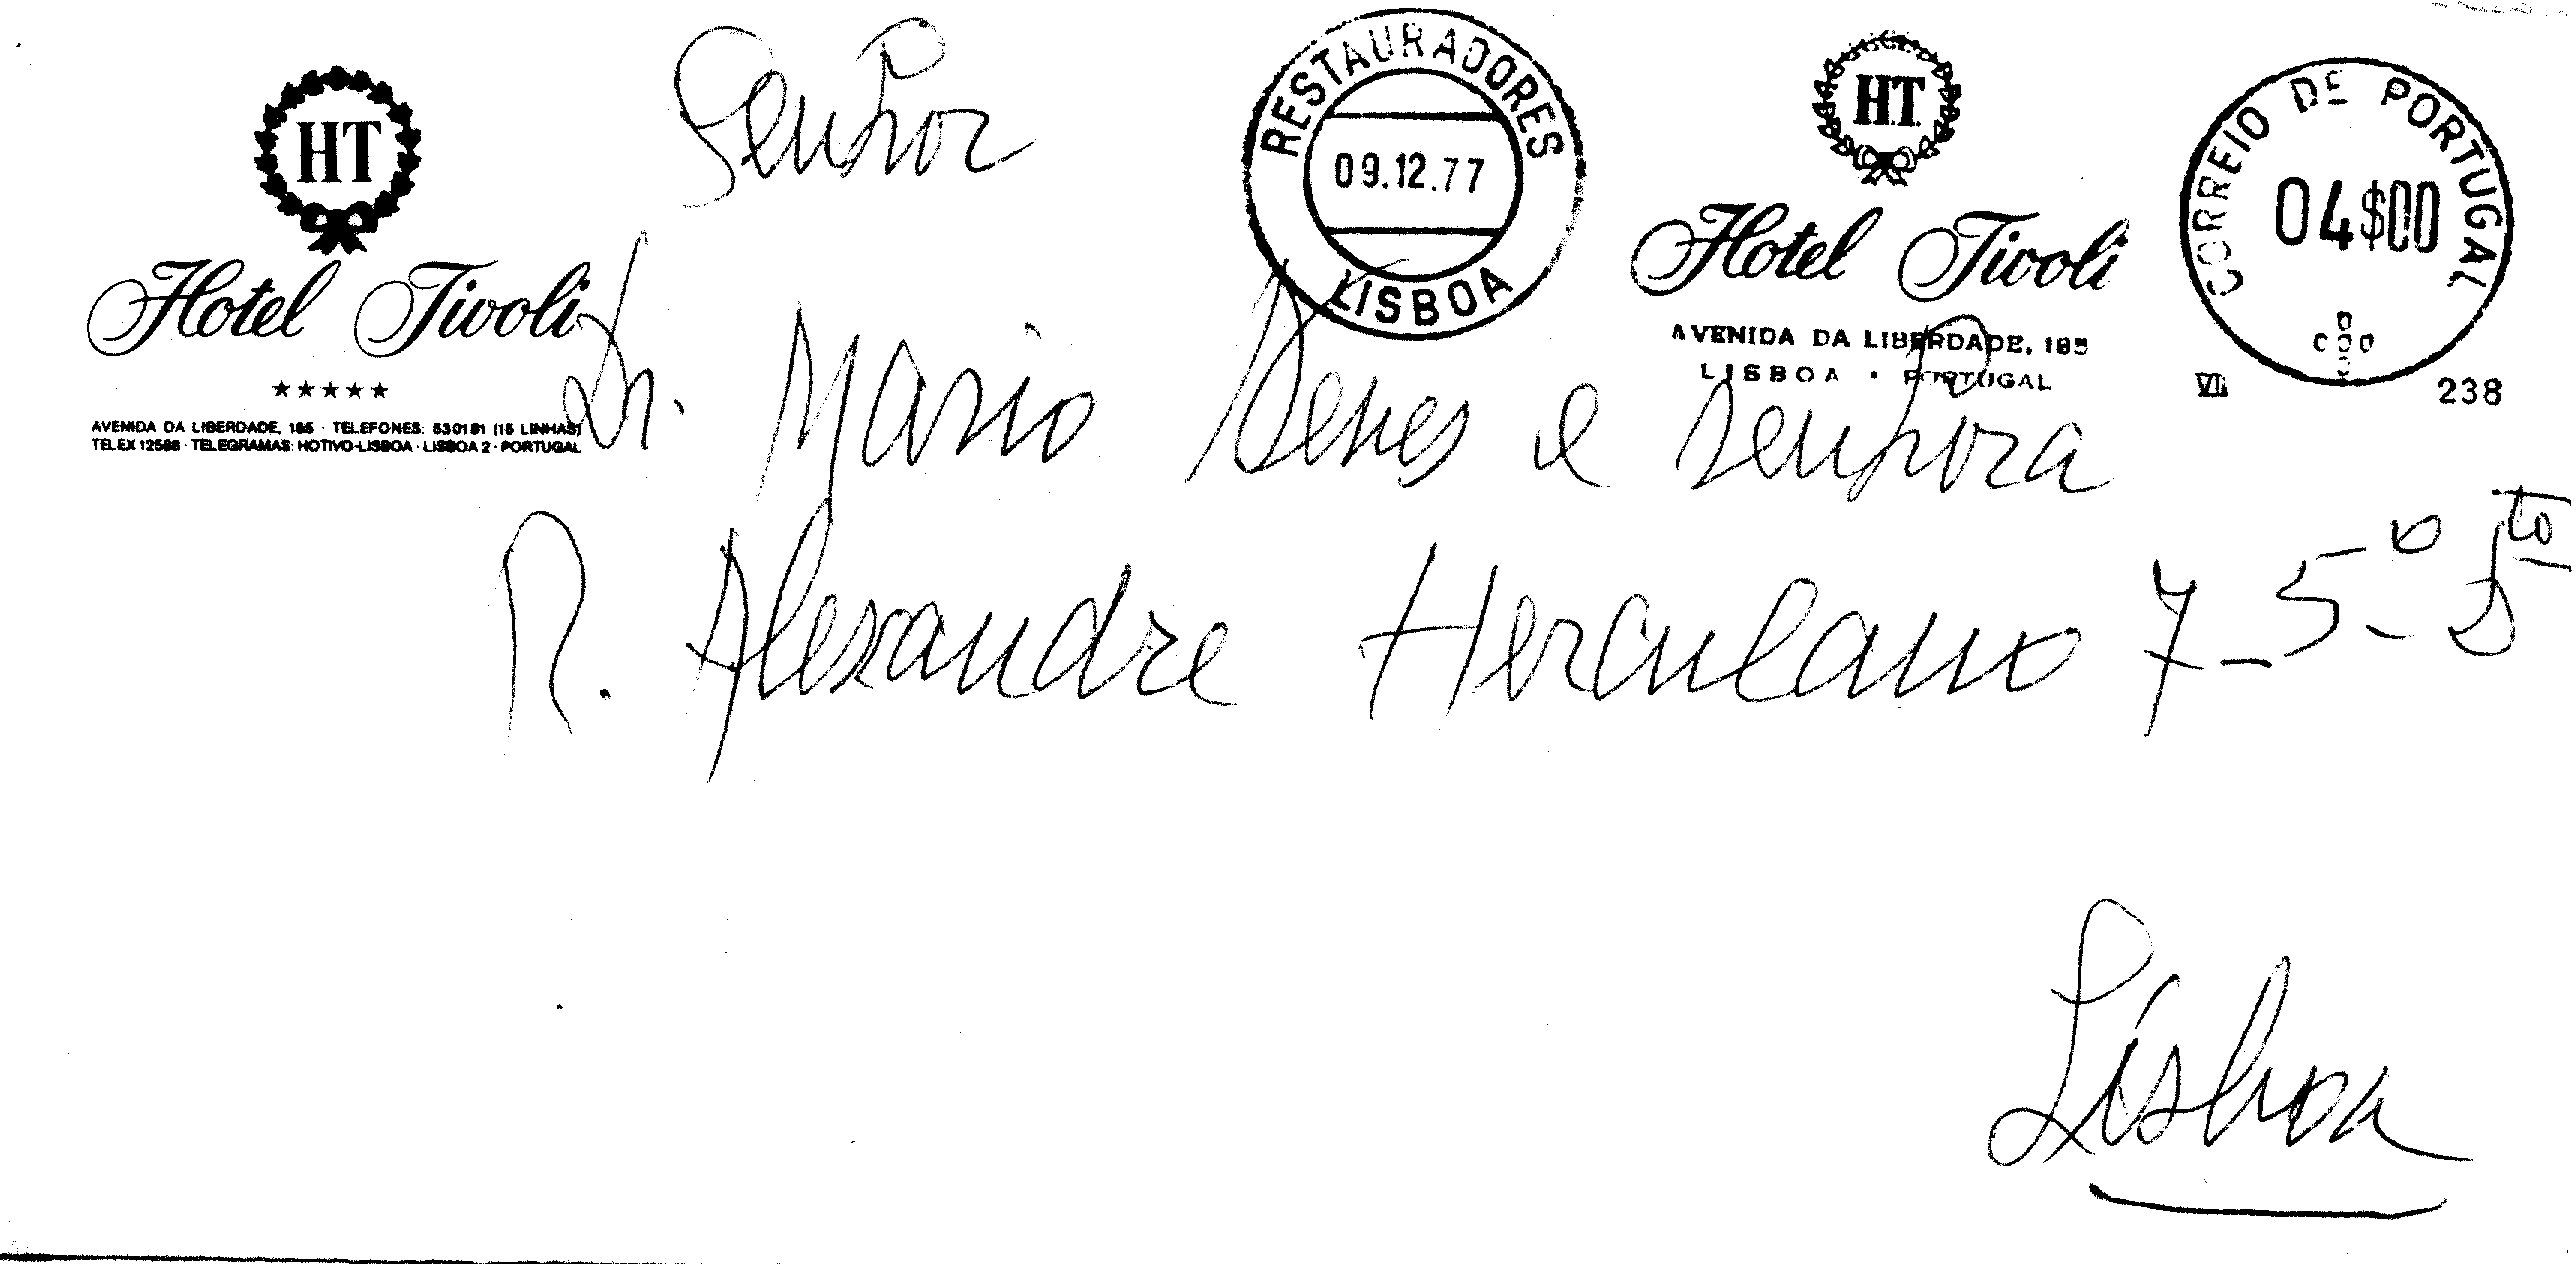 HT
Hotel Tivoli
★★★★★
AVENIDA DA LIBERDADE, 185 · TELEFONES: 530181 (15 LINHAS)
TELEX 12588 · TELEGRAMAS: HOTIVO-LISBOA · LISBOA 2 · PORTUGAL
RESTAURADORES
09.12.77
LISBOA
HT
Hotel Tivoli
AVENIDA DA LIBERDADE, 185
LISBOA · PORTUGAL
CORREIO DE PORTUGAL
04$00
238
Senhor
Dr. Mario e senhora
R. Alexandre Herculano 7-5º Dto
Lisboa